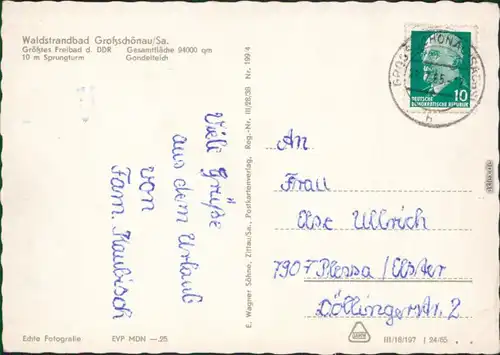 Waldstrandbad Großschönau/Sa.
Größtes Freibad d. DDR Gesamtfläche 94000 qm
10 m Sprungturm Gondelteich
Viele Grüße
aus dem Urlaub
von
Fam. Kaubisch
E. Wagner Söhne, Zittau/Sa., Postkartenverlag, Reg.-Nr. III/28/38 Nr. 199/4
10
DEUTSCHE
DEMOKRATISCHE REPUBLIK
An
Frau
Ilse Ullrich
7907 Plessa/Elster
Döllingerstr. 2
Echte Fotografie EVP MDN —.25
III/18/197 J 24/65